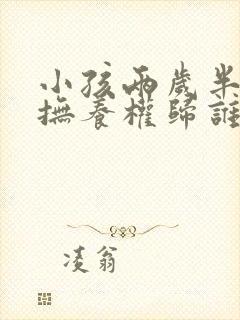 小孩兩歲半
撫養權歸誰
凌翁